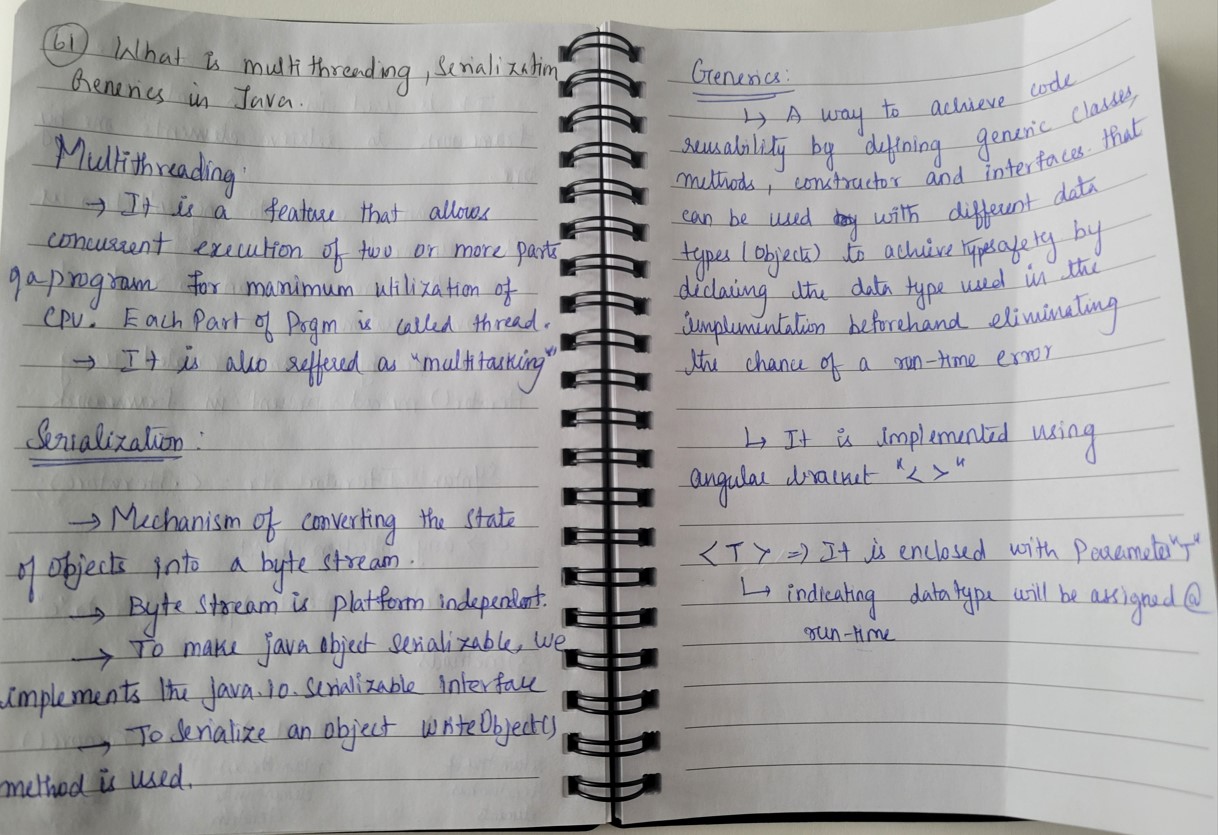 61) What is multithreading, Serialization
Generics in Java.
Multithreading:
→ It is a feature that allows
concurrent execution of two or more parts
of a program for maximum utilization of
CPU. Each Part of Prgm is called thread.
→ It is also reffered as "multitasking"
Serialization :
→ Mechanism of converting the state
of Objects into a byte stream.
→ Byte Stream is platform independent.
→ To make java object Serializable, we
implements the java.io.Serializable interface
→ To Serialize an object writeObject()
method is used.
Generics:
↳ A way to achieve code
reusability by defining generic classes,
methods, constructor and interfaces that
can be used with different data
types (Objects) to achieve typesafety by
declaring the data type used in the
implementation beforehand eliminating
the chance of a run-time error
↳ It is implemented using
angular bracket "< >"
<T> => It is enclosed with Parameter "T"
↳ indicating datatype will be assigned @
run-time